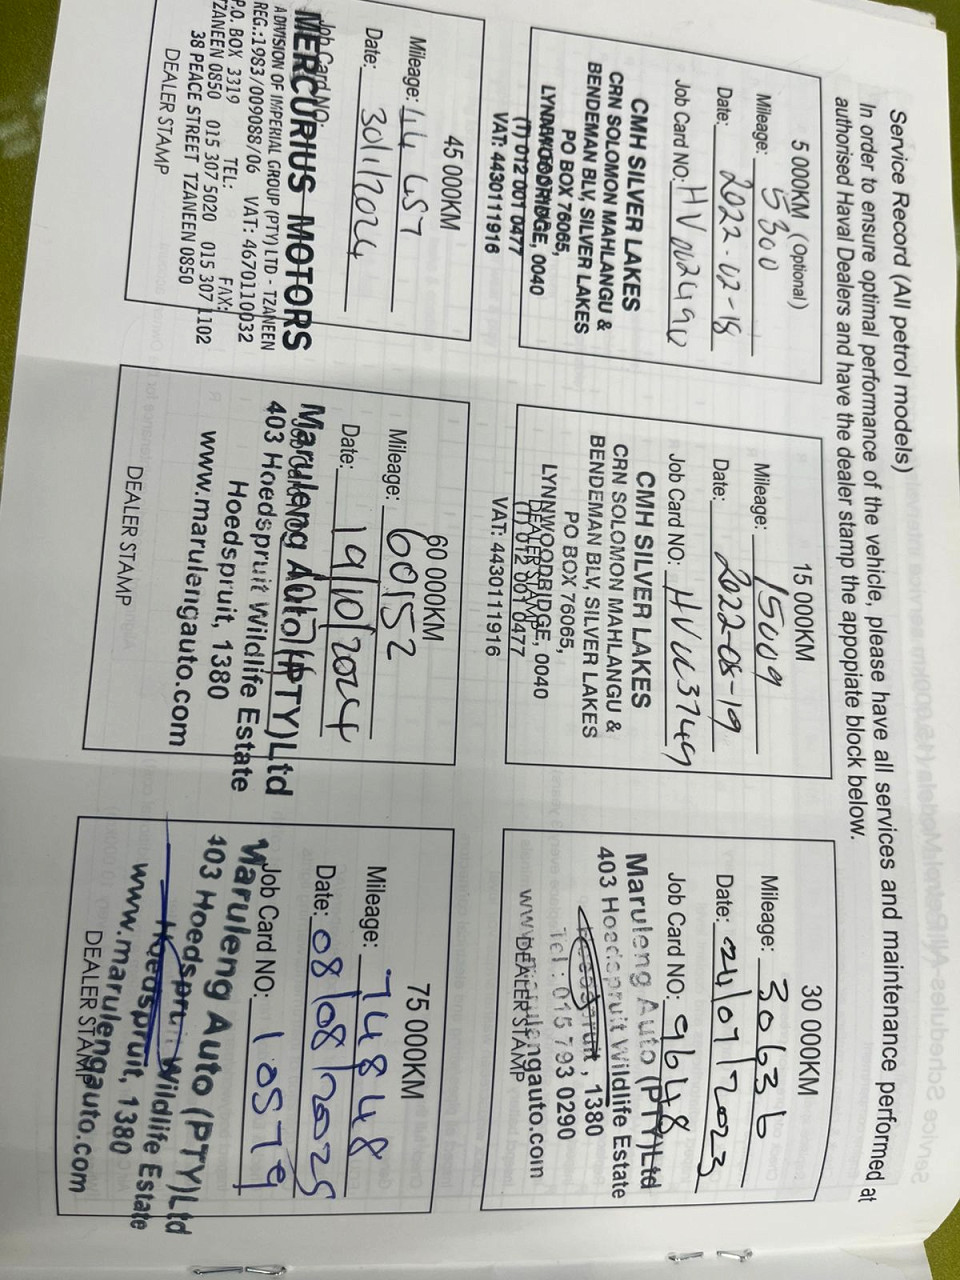 Service Record (All petrol models)
In order to ensure optimal performance of the vehicle, please have all services and maintenance performed at
authorised Haval Dealers and have the dealer stamp the appopiate block below.
5 000KM (Optional)
Mileage: 5300
Date: 2022-02-18
Job Card NO:
CMH SILVER LAKES
CRN SOLOMON MAHLANGU &
BENDEMAN BLV, SILVER LAKES
PO BOX 76065,
LYNNWOODRIDGE, 0040
(T) 012 001 0477
VAT: 4430111916
15 000KM
Mileage: 15009
Date: 2022-08-19
Job Card NO: HVW3749
CMH SILVER LAKES
CRN SOLOMON MAHLANGU &
BENDEMAN BLV, SILVER LAKES
PO BOX 76065,
LYNNWOODRIDGE, 0040
DEALER STAMP
(T) 012 001 0477
VAT: 4430111916
30 000KM
Mileage: 30636
Date: 24/07/2023
Job Card NO: 9648
Maruleng Auto (PTY)Ltd
403 Hoedspruit Wildlife Estate
Hoedspruit, 1380
Tel: 015 793 0290
www.marulengauto.com
DEALER STAMP
45 000KM
Mileage: 44 457
Date: 30/1/2024
Job Card NO:
MERCURIUS MOTORS
A DIVISION OF IMPERIAL GROUP (PTY) LTD - TZANEEN
REG.:1983/009088/06 VAT: 4670110032
P.O. BOX 3319 TEL: FAX:
TZANEEN 0850 015 307 5020 015 307 1102
38 PEACE STREET TZANEEN 0850
DEALER STAMP
60 000KM
Mileage: 60152
Date: 19/10/2024
Maruleng Auto (PTY)Ltd
403 Hoedspruit Wildlife Estate
Hoedspruit, 1380
www.marulengauto.com
DEALER STAMP
75 000KM
Mileage: 74848
Date: 08/08/2025
Job Card NO: 10579
Maruleng Auto (PTY)Ltd
403 Hoedspruit Wildlife Estate
Hoedspruit, 1380
www.marulengauto.com
DEALER STAMP